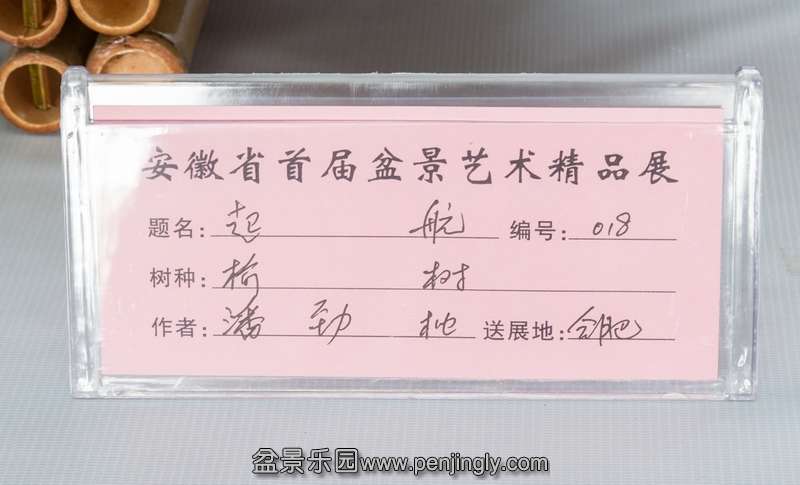 安徽省首届盆景艺术精品展
题名: 起航 编号: 018
树种: 榆树
作者: 潘劲 送展地: 合肥
盆景乐园www.penjingly.com